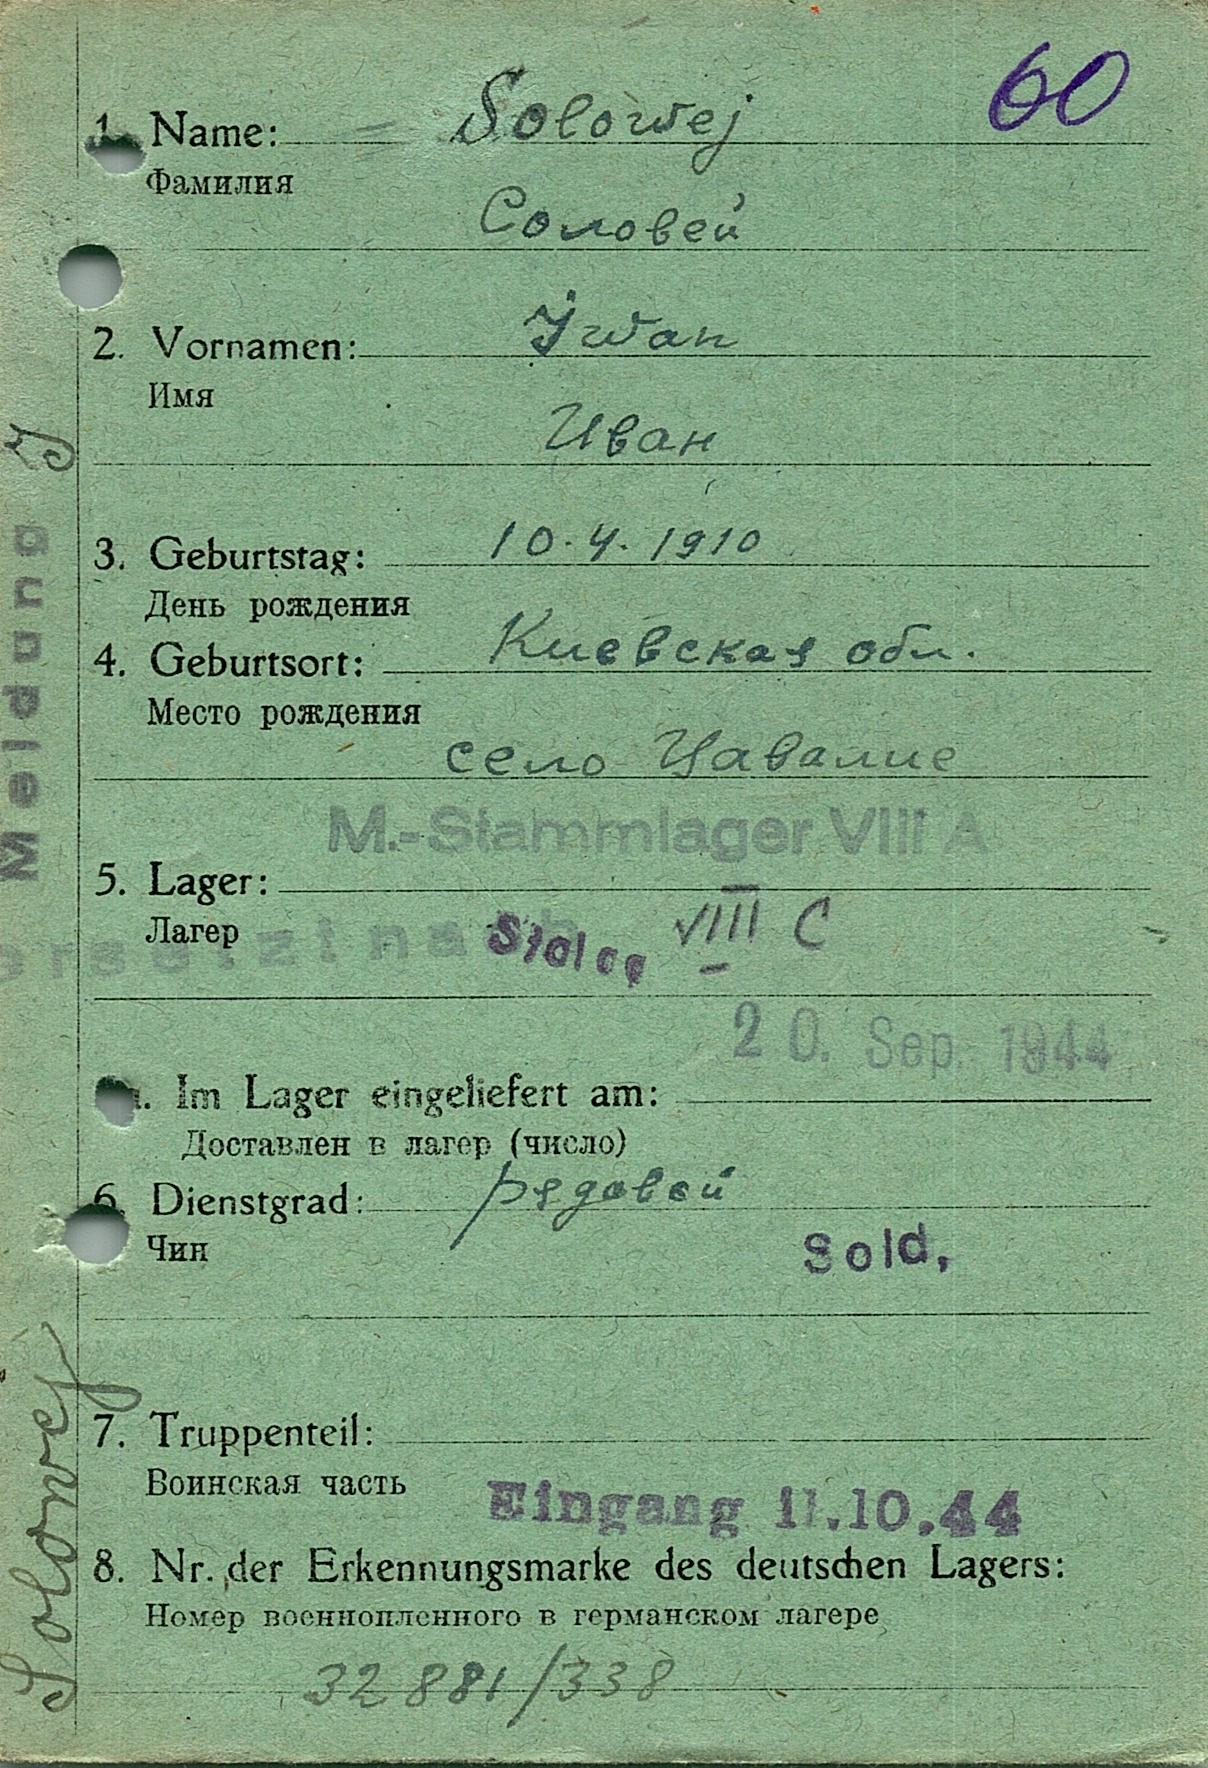 60
1. Name: Solowej
Фамилия
Соловей
2. Vornamen: Iwan
Имя
Иван
3. Geburtstag: 10.4.1910
День рождения
4. Geburtsort: Киевская обл.
Место рождения
село
M.-Stammlager VIII A
5. Lager:
Лагер
Stalag VIII C
ersetzt nach
20. Sep. 1944
Im Lager eingeliefert am:
Доставлен в лагер (число)
6. Dienstgrad: рядовей
Чин
Sold.
7. Truppenteil:
Воинская часть
Eingang 11.10.44
8. Nr. der Erkennungsmarke des deutschen Lagers:
Номер военнопленного в германском лагере
32881/338
Meldung
Solowej J